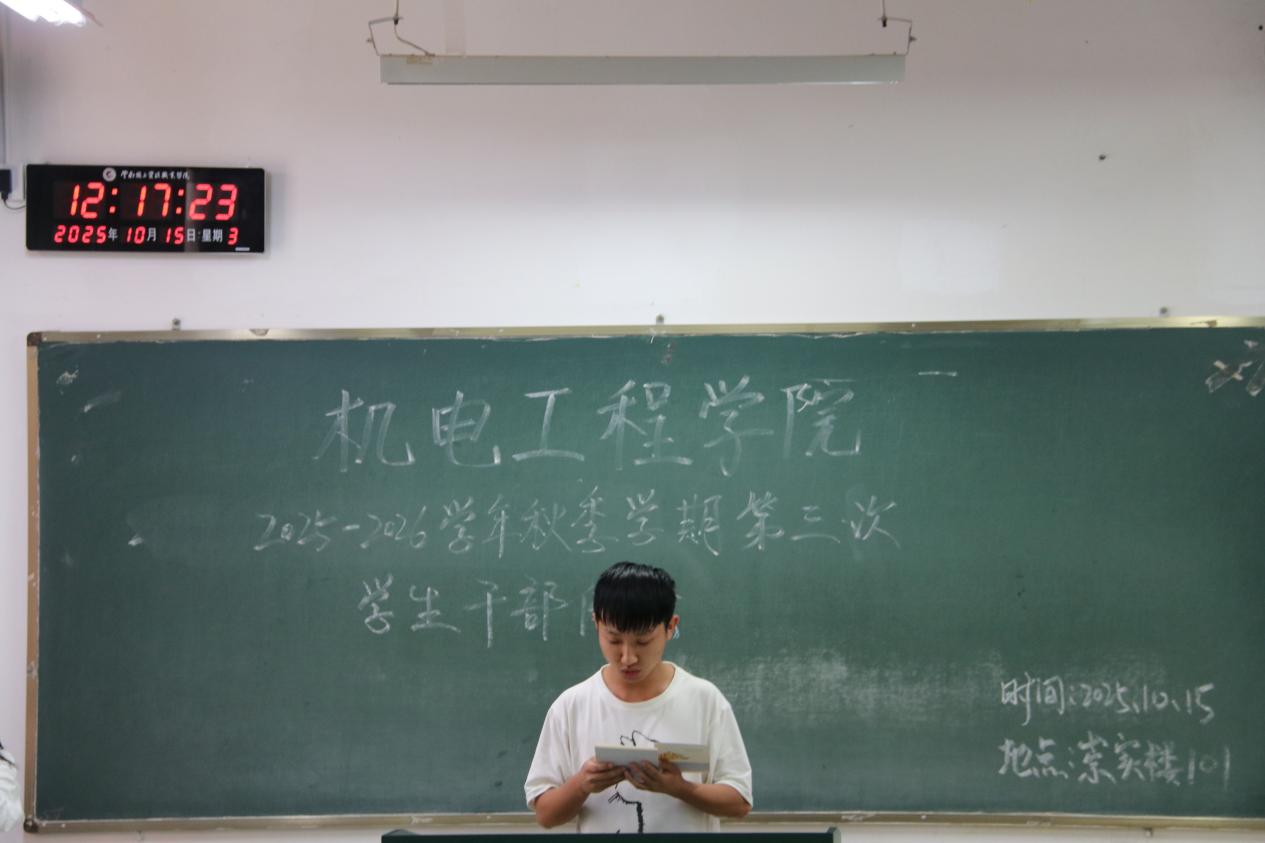 12:17:23
2025年 10月 15日 星期 3
机电工程学院
2025-2026学年秋季学期第三次
学生干部
时间:2025.10.15
地点:崇实楼101